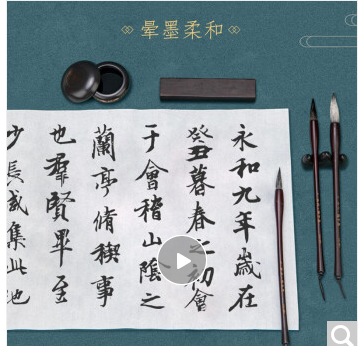 暈墨柔和
永和九年歲在
癸丑暮春之初會
于會稽山陰之
蘭亭脩禊事
也羣賢畢至
少長咸集此地